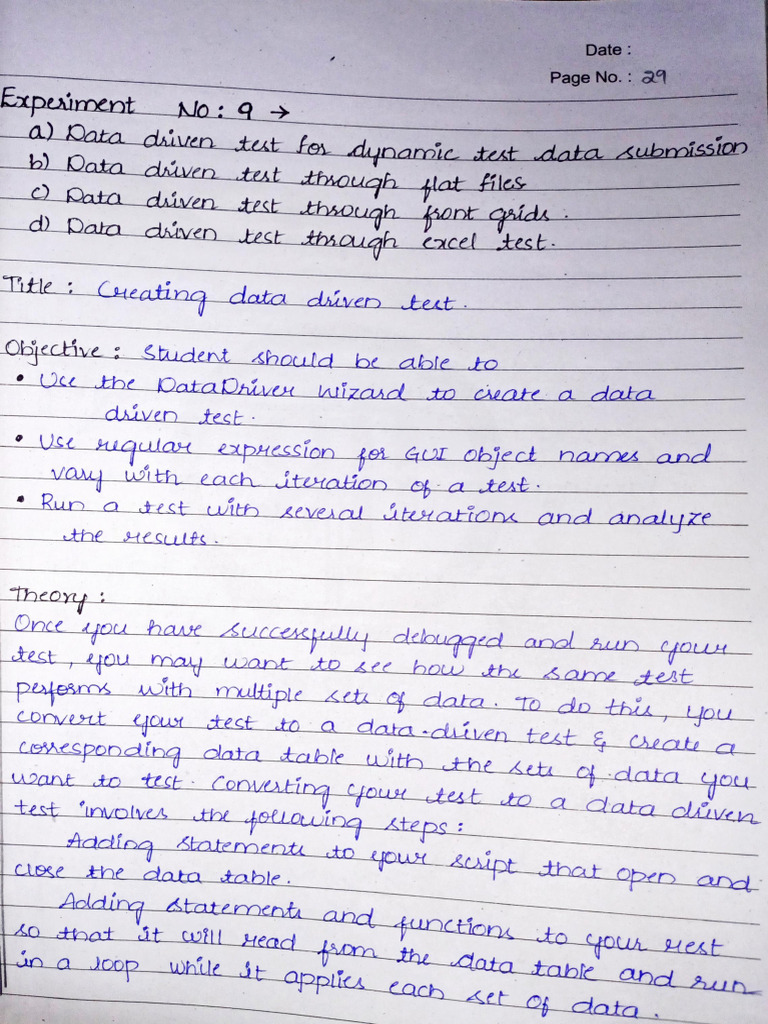 Date :
Page No. : 29
Experiment No : 9 →
a) Data driven test for dynamic test data submission
b) Data driven test through flat files
c) Data driven test through front grids.
d) Data driven test through excel test.
Title : Creating data driven test.
Objective : Student should be able to
• Use the DataDriver wizard to create a data
driven test.
• Use regular expression for GUI object names and
vary with each iteration of a test.
• Run a test with several iterations and analyze
the results.
Theory :
Once you have successfully debugged and run your
test, you may want to see how the same test
performs with multiple sets of data. To do this, you
convert your test to a data-driven test & create a
corresponding data table with the sets of data you
want to test. Converting your test to a data driven
test involves the following steps :
Adding statements to your script that open and
close the data table.
Adding statements and functions to your rest
so that it will read from the data table and run
in a loop while it applies each set of data.